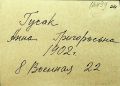 Гусак
Анна Григорьевна
1902 г.
8 Военная 22